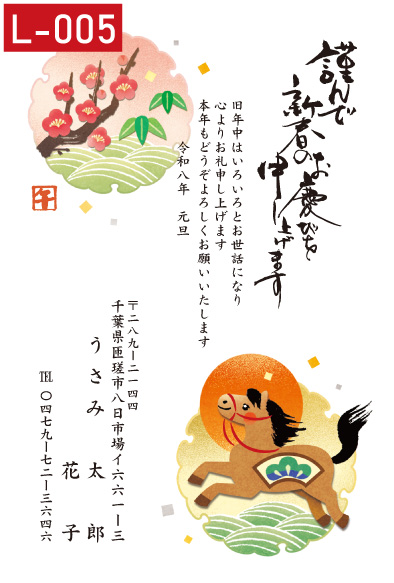 L-005
謹んで
新春のお慶びを
申し上げます
旧年中はいろいろとお世話になり
心よりお礼申し上げます
本年もどうぞよろしくお願いいたします
令和八年　元旦
午
〒二八九ー二一四四
千葉県匝瑳市八日市場イ六六一ー三
うさみ　太郎
花子
℡　〇四七九ー七二ー三六四六